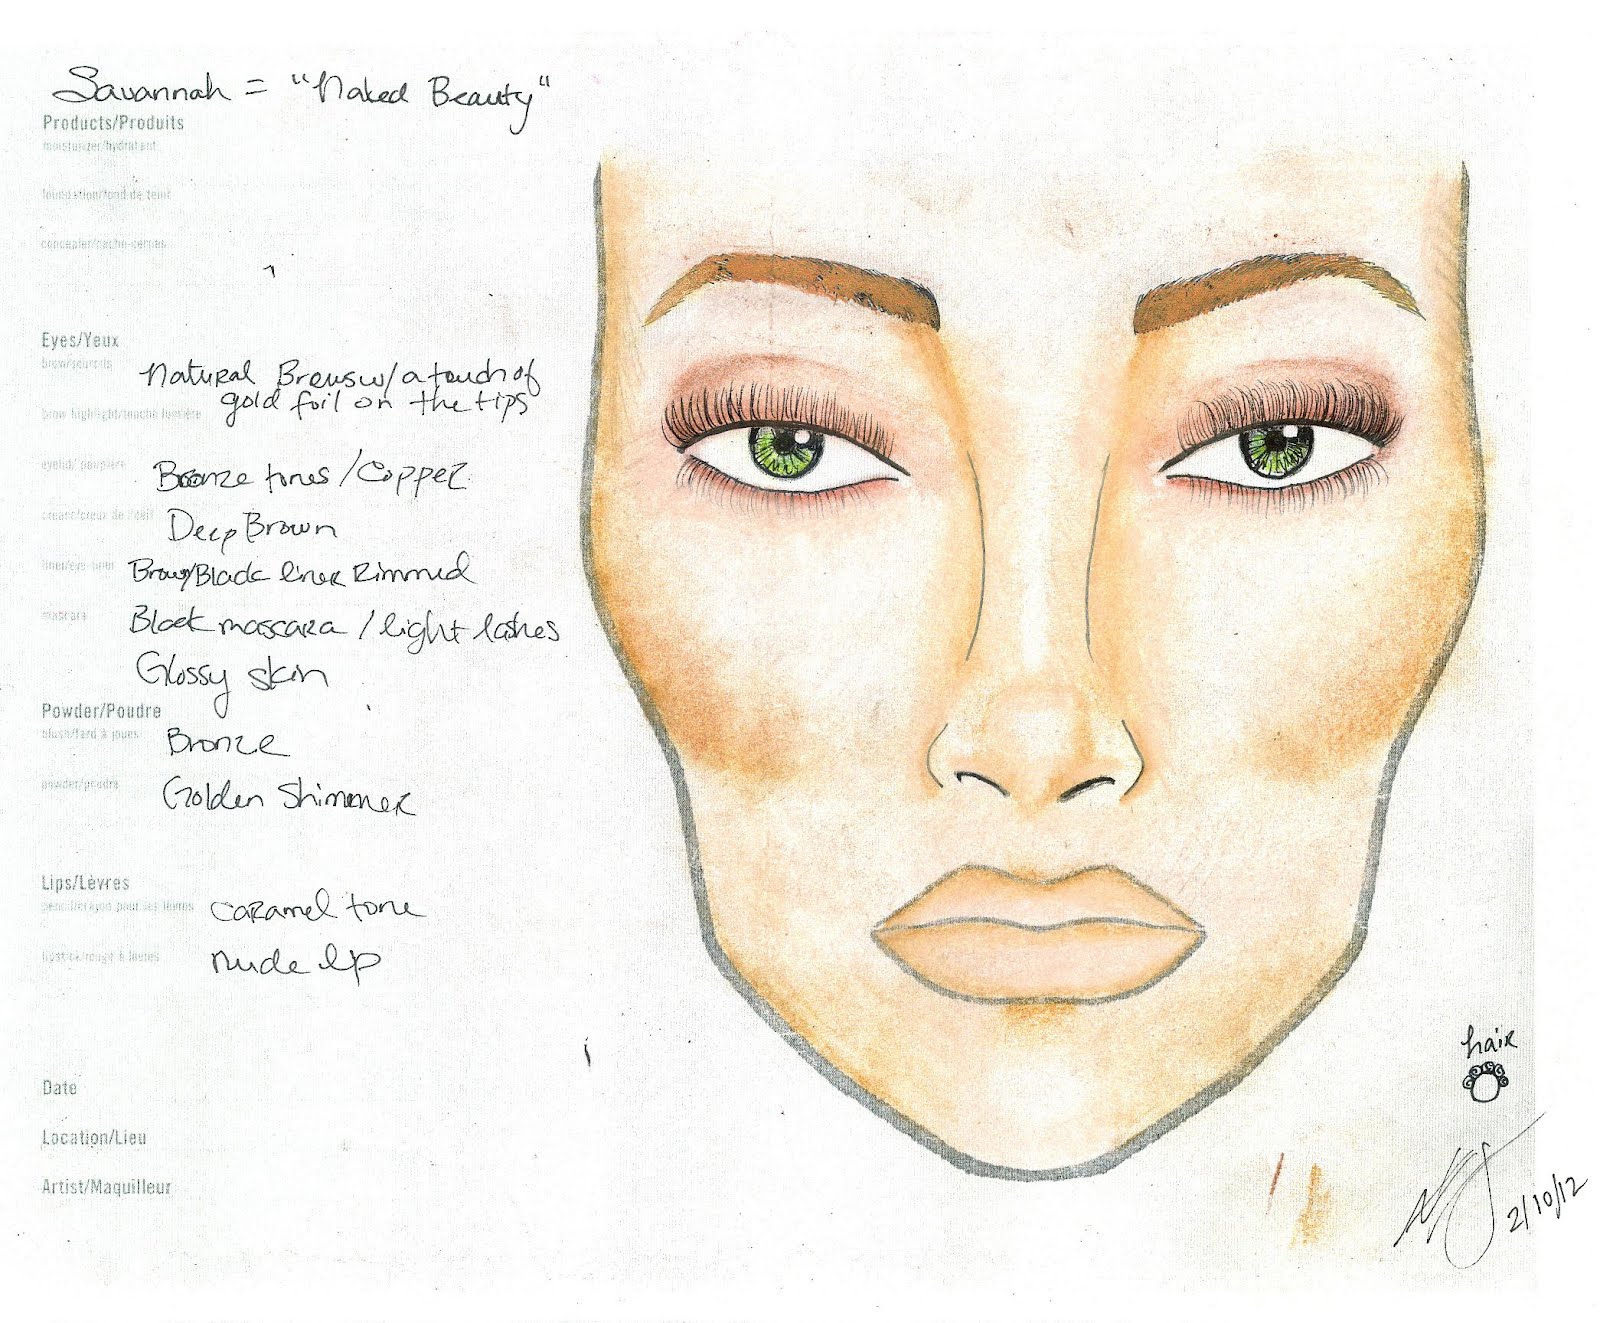 Savannah = "Naked Beauty"
Products/Produits
moisturizer/hydratant
foundation/fond de teint
concealer/cache-cernes
Eyes/Yeux
brow/sourcils
Natural Brows w/a touch of
gold foil on the tips
brow highlight/touche lumière
eyelid/paupière
Bronze tones / Copper
crease/creux de l'oeil
Deep Brown
liner/eye-liner
Brown/Black liner Rimmed
mascara
Black mascara / light lashes
Glossy skin
Powder/Poudre
blush/fard à joues
Bronze
powder/poudre
Golden Shimmer
Lips/Lèvres
pencil/crayon pour les lèvres
caramel tone
lipstick/rouge à lèvres
nude lip
Date
Location/Lieu
Artist/Maquilleur
hair
2/10/12